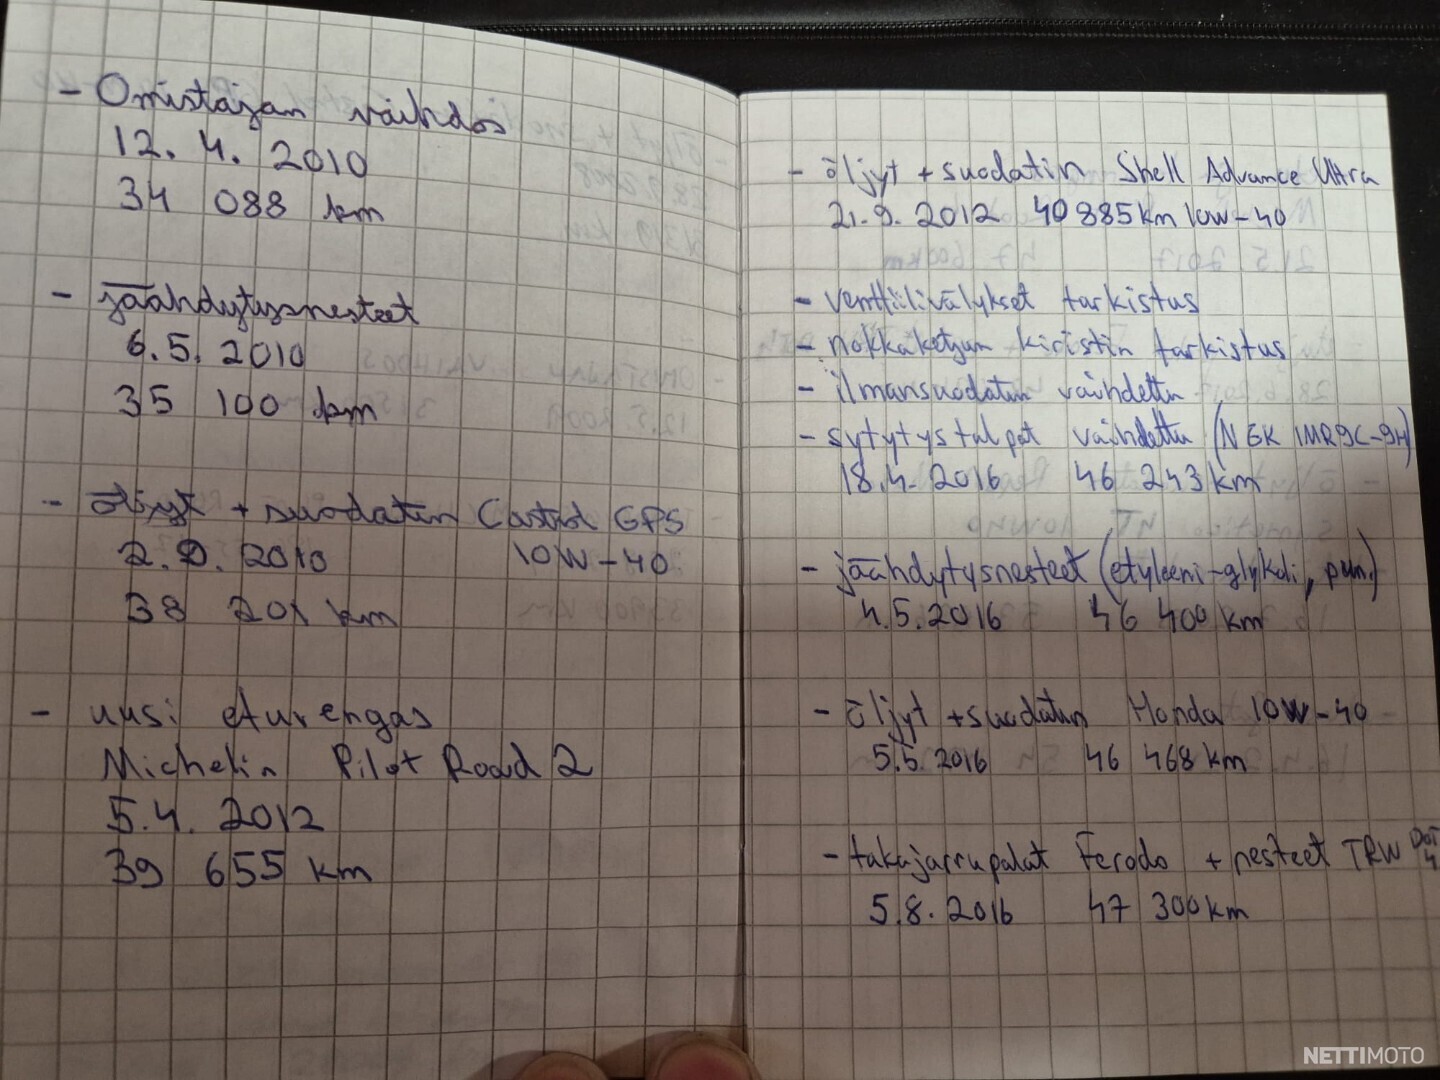 - Omistajan vaihdos
12. 4. 2010
34 088 km
- jäähdytysnesteet
6.5. 2010
35 100 km
- öljyt + suodatin Castrol GPS
10W-40
38 201 km
- uusi eturengas
Michelin Pilot Road 2
5.4. 2012
39 655 km
- öljyt + suodatin Shell Advance Ultra
21.9. 2012 40 885 km 10W-40
- venttiilivälykset tarkistus
- nokkaketjun kiristin tarkistus
- ilmansuodatin vaihdettu
- sytytystulpat vaihdettu (NGK IMR9C-9H)
18.4. 2016 46 243 km
- jäähdytysnesteet (etyleeni-glykoli, pun.)
4.5.2016 46 400 km
- öljyt + suodatin Honda 10W-40
5.5.2016 46 468 km
- takajarrupalat Ferodo + nesteet TRW DOT 4
5.8.2016 47 300 km
NETTIMOTO